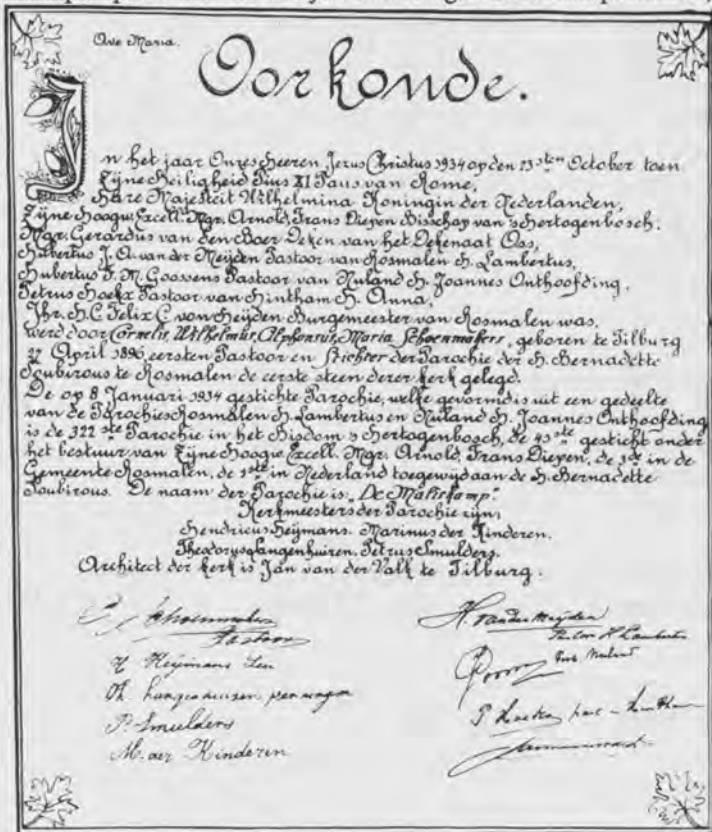 Ave Maria.
Oorkonde.
In het jaar Onzes Heeren Jezus Christus 1934 op den 13sten October toen
Zijne Heiligheid Pius XI Paus van Rome,
Hare Majesteit Wilhelmina Koningin der Nederlanden,
Zijne Hoogw. Excell. Mgr. Arnold, Frans Diepen Bisschop van 's Hertogenbosch.
Mgr. Gerardus van den Boer Deken van het Dekenaat Oss,
Hubertus J. A. van der Meijden Pastoor van Rosmalen H. Lambertus,
Hubertus F. M. Goossens Pastoor van Nuland H. Joannes Onthoofding,
Petrus Hoekx Pastoor van Hintham H. Anna,
Jhr. H. C. Felix C. von Heijden Burgemeester van Rosmalen was,
werd door Cornelis, Wilhelmus, Alphonsus, Maria Schoenmakers, geboren te Tilburg
27 April 1896, eersten Pastoor en Stichter der Parochie der H. Bernadette
Soubirous te Rosmalen de eerste steen dezer kerk gelegd.
De op 8 Januari 1934 gestichte Parochie, welke gevormd is uit een gedeelte
van de Parochies Rosmalen H. Lambertus en Nuland H. Joannes Onthoofding
is de 322ste Parochie in het Bisdom 's Hertogenbosch, de 43ste gesticht onder
het bestuur van Zijne Hoogw. Excell. Mgr. Arnold, Frans Diepen, de 3de in de
Gemeente Rosmalen, de 1ste in Nederland toegewijd aan de H. Bernadette
Soubirous. De naam der Parochie is: "De Maliskamp."
Kerkmeesters der Parochie zijn,
Hendricus Heijmans. Marinus der Kinderen.
Theodorus Langenhuizen. Petrus Smulders.
Architect der kerk is Jan van der Valk te Tilburg.
Schoenmakers
Pastoor
H Heijmans
Th Langenhuizen
P. Smulders
M. der Kinderen
H. van der Meijden
Pastoor H Lambertus
Past Nuland
P Hoekx